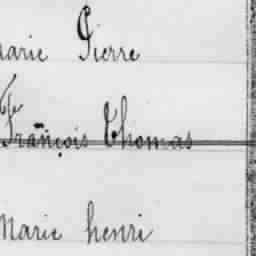 Marie Pierre
François Thomas
Marie henri